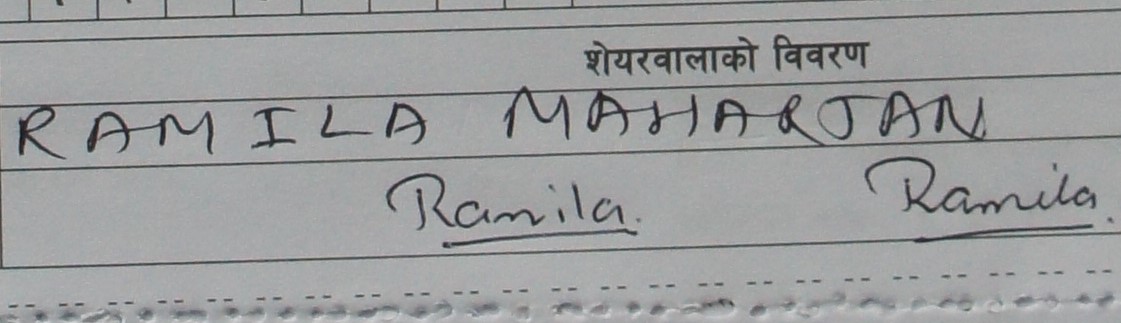 शेयरवालाको विवरण
RAMILA MAHARJAN
Ramila. Ramila.